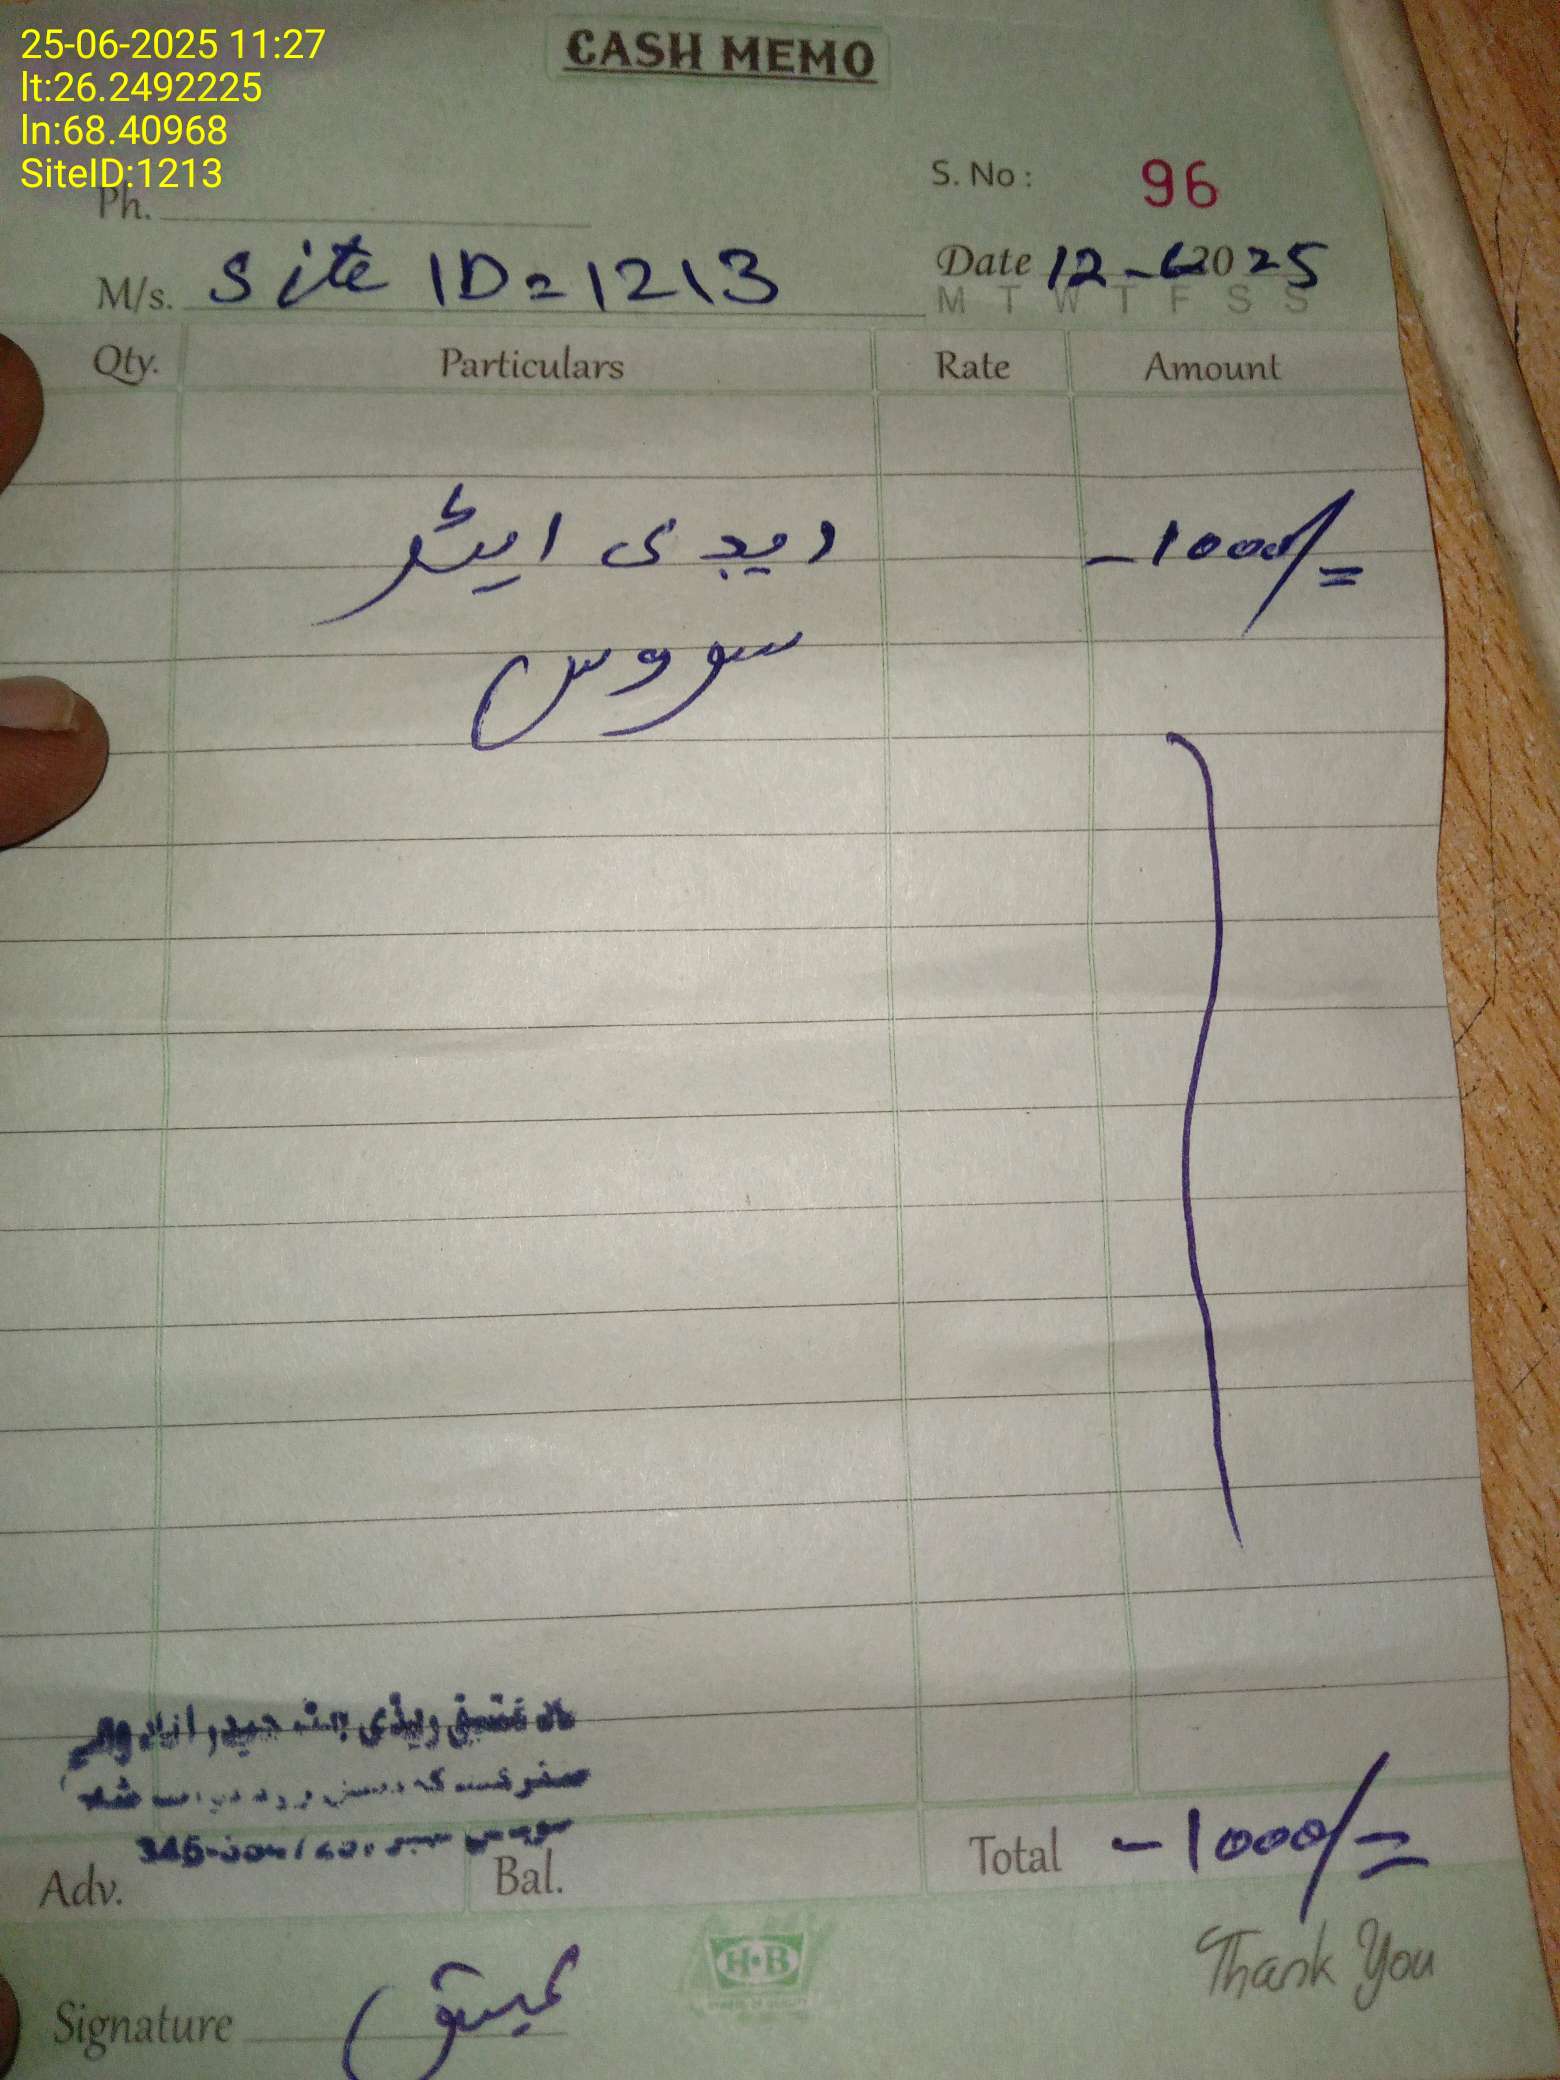 25-06-2025 11:27
lt:26.2492225
ln:68.40968
SiteID:1213
CASH MEMO
Ph.
S. No : 96
M/s. Site ID=1213
Date 12-6-2025
M T W T F S S
Qty. Particulars Rate Amount
ریڈی ایٹر -1000/=
سروس
Adv. Bal. Total -1000/=
H·B
Thank You
Signature